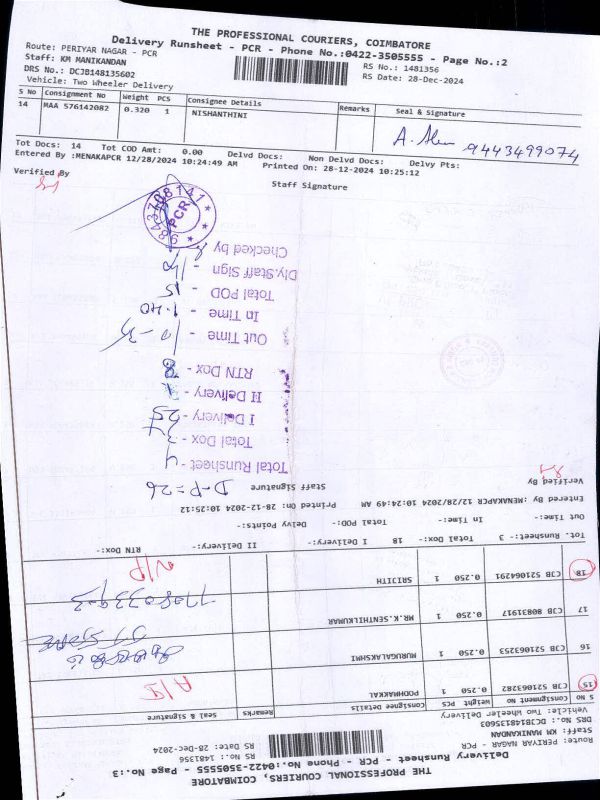 THE PROFESSIONAL COURIERS, COIMBATORE
Delivery Runsheet - PCR - Phone No.:0422-3505555 - Page No.:2
Route: PERIYAR NAGAR - PCR
RS No.: 1481356
Staff: KM MANIKANDAN
RS Date: 28-Dec-2024
DRS No.: DCJB148135602
Vehicle: Two Wheeler Delivery
S No Consignment No Weight PCS Consignee Details Remarks Seal & Signature
14 MAA 576142082 0.320 1 NISHANTHINI
9443499074
Tot Docs: 14 Tot COD Amt: 0.00 Delvd Docs: Non Delvd Docs: Delvy Pts:
Entered By :MENAKAPCR 12/28/2024 10:24:49 AM Printed On: 28-12-2024 10:25:12
Verified By Staff Signature
9843708141
PCR
THE PROFESSIONAL COURIERS, COIMBATORE
Delivery Runsheet - PCR - Phone No.:0422-3505555 - Page No.:3
Route: PERIYAR NAGAR - PCR
RS No.: 1481356
Staff: KM MANIKANDAN
RS Date: 28-Dec-2024
DRS No.: DCJB148135603
Vehicle: Two Wheeler Delivery
S No Consignment No Weight PCS Consignee Details Remarks Seal & Signature
15 CJB 521063282 0.250 1 PODHMAKKAL
16 CJB 521063253 0.250 1 MURUGALAKSHMI
17 CJB 80831917 0.250 1 MR.K.SENTHILKUMAR
18 CJB 521064291 0.250 1 SRIJITH
N/P
Tot. Runsheet:- 3 Total Dox:- 18 I Delivery:- II Delivery:- RTN Dox:-
Out Time:- In Time:- Total POD:- Delvy Points:-
Entered By :MENAKAPCR 12/28/2024 10:24:49 AM Printed On: 28-12-2024 10:25:12
Verified By Staff Signature
D-P=26
Total Runsheet - 4
Total Dox -
I Delivery - 25
II Delivery -
RTN Dox - 8
Out Time - 10-35
In Time - 1.40
Total POD - 15
Dly.Staff Sign -
Checked by